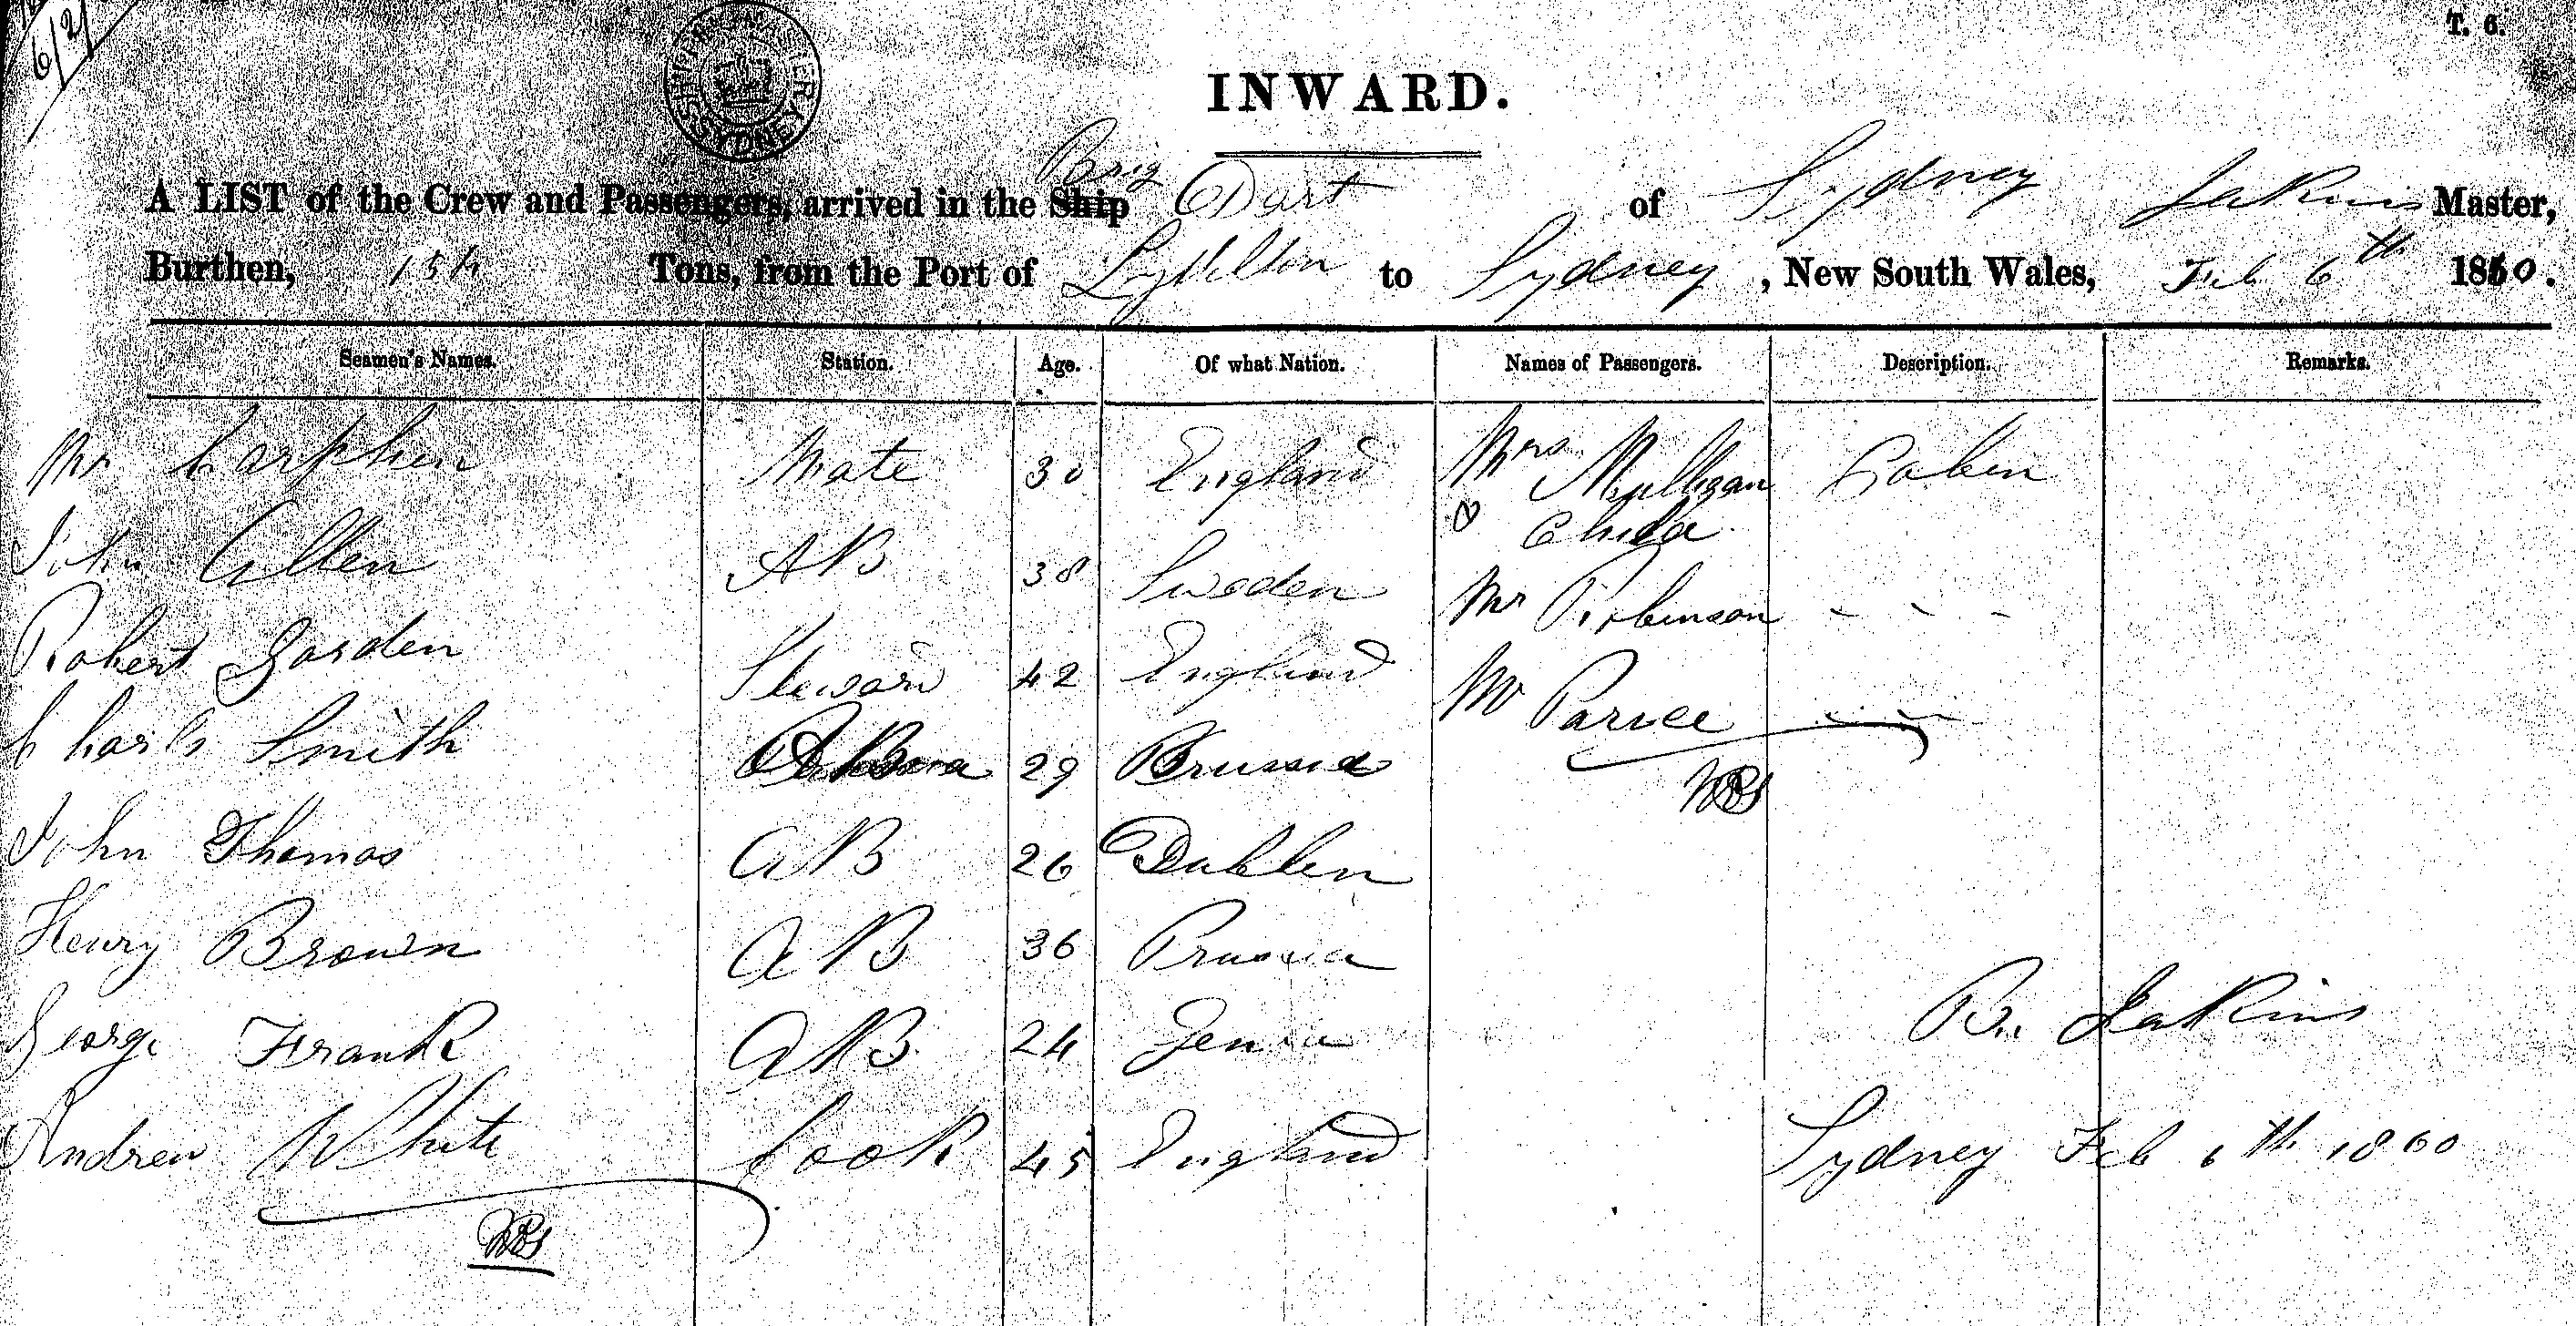 6/2
SHIPPING MASTER'S SYDNEY
T. 6.
INWARD.
Brig
A LIST of the Crew and Passengers, arrived in the Ship Dart of Sydney Jakins Master,
Burthen, 154 Tons, from the Port of Lyttelton to Sydney, New South Wales, Feb 6th 1860.
Seamen's Names. Station. Age. Of what Nation. Names of Passengers. Description. Remarks.
Mr Mate 30 England Mrs Mulligan Caben
John Allen AB 38 Sweden & Child
Robert Gorden Steward 42 England Mr Robinson - - -
Charls Smith AB 29 Prussia Mr
John Thomas AB 26 Dublen
Henry Brown AB 36 Prussia
George Frank AB 24 Genoa
Andrew White Cook 45 England
Jakins
Sydney Feb 6th 1860